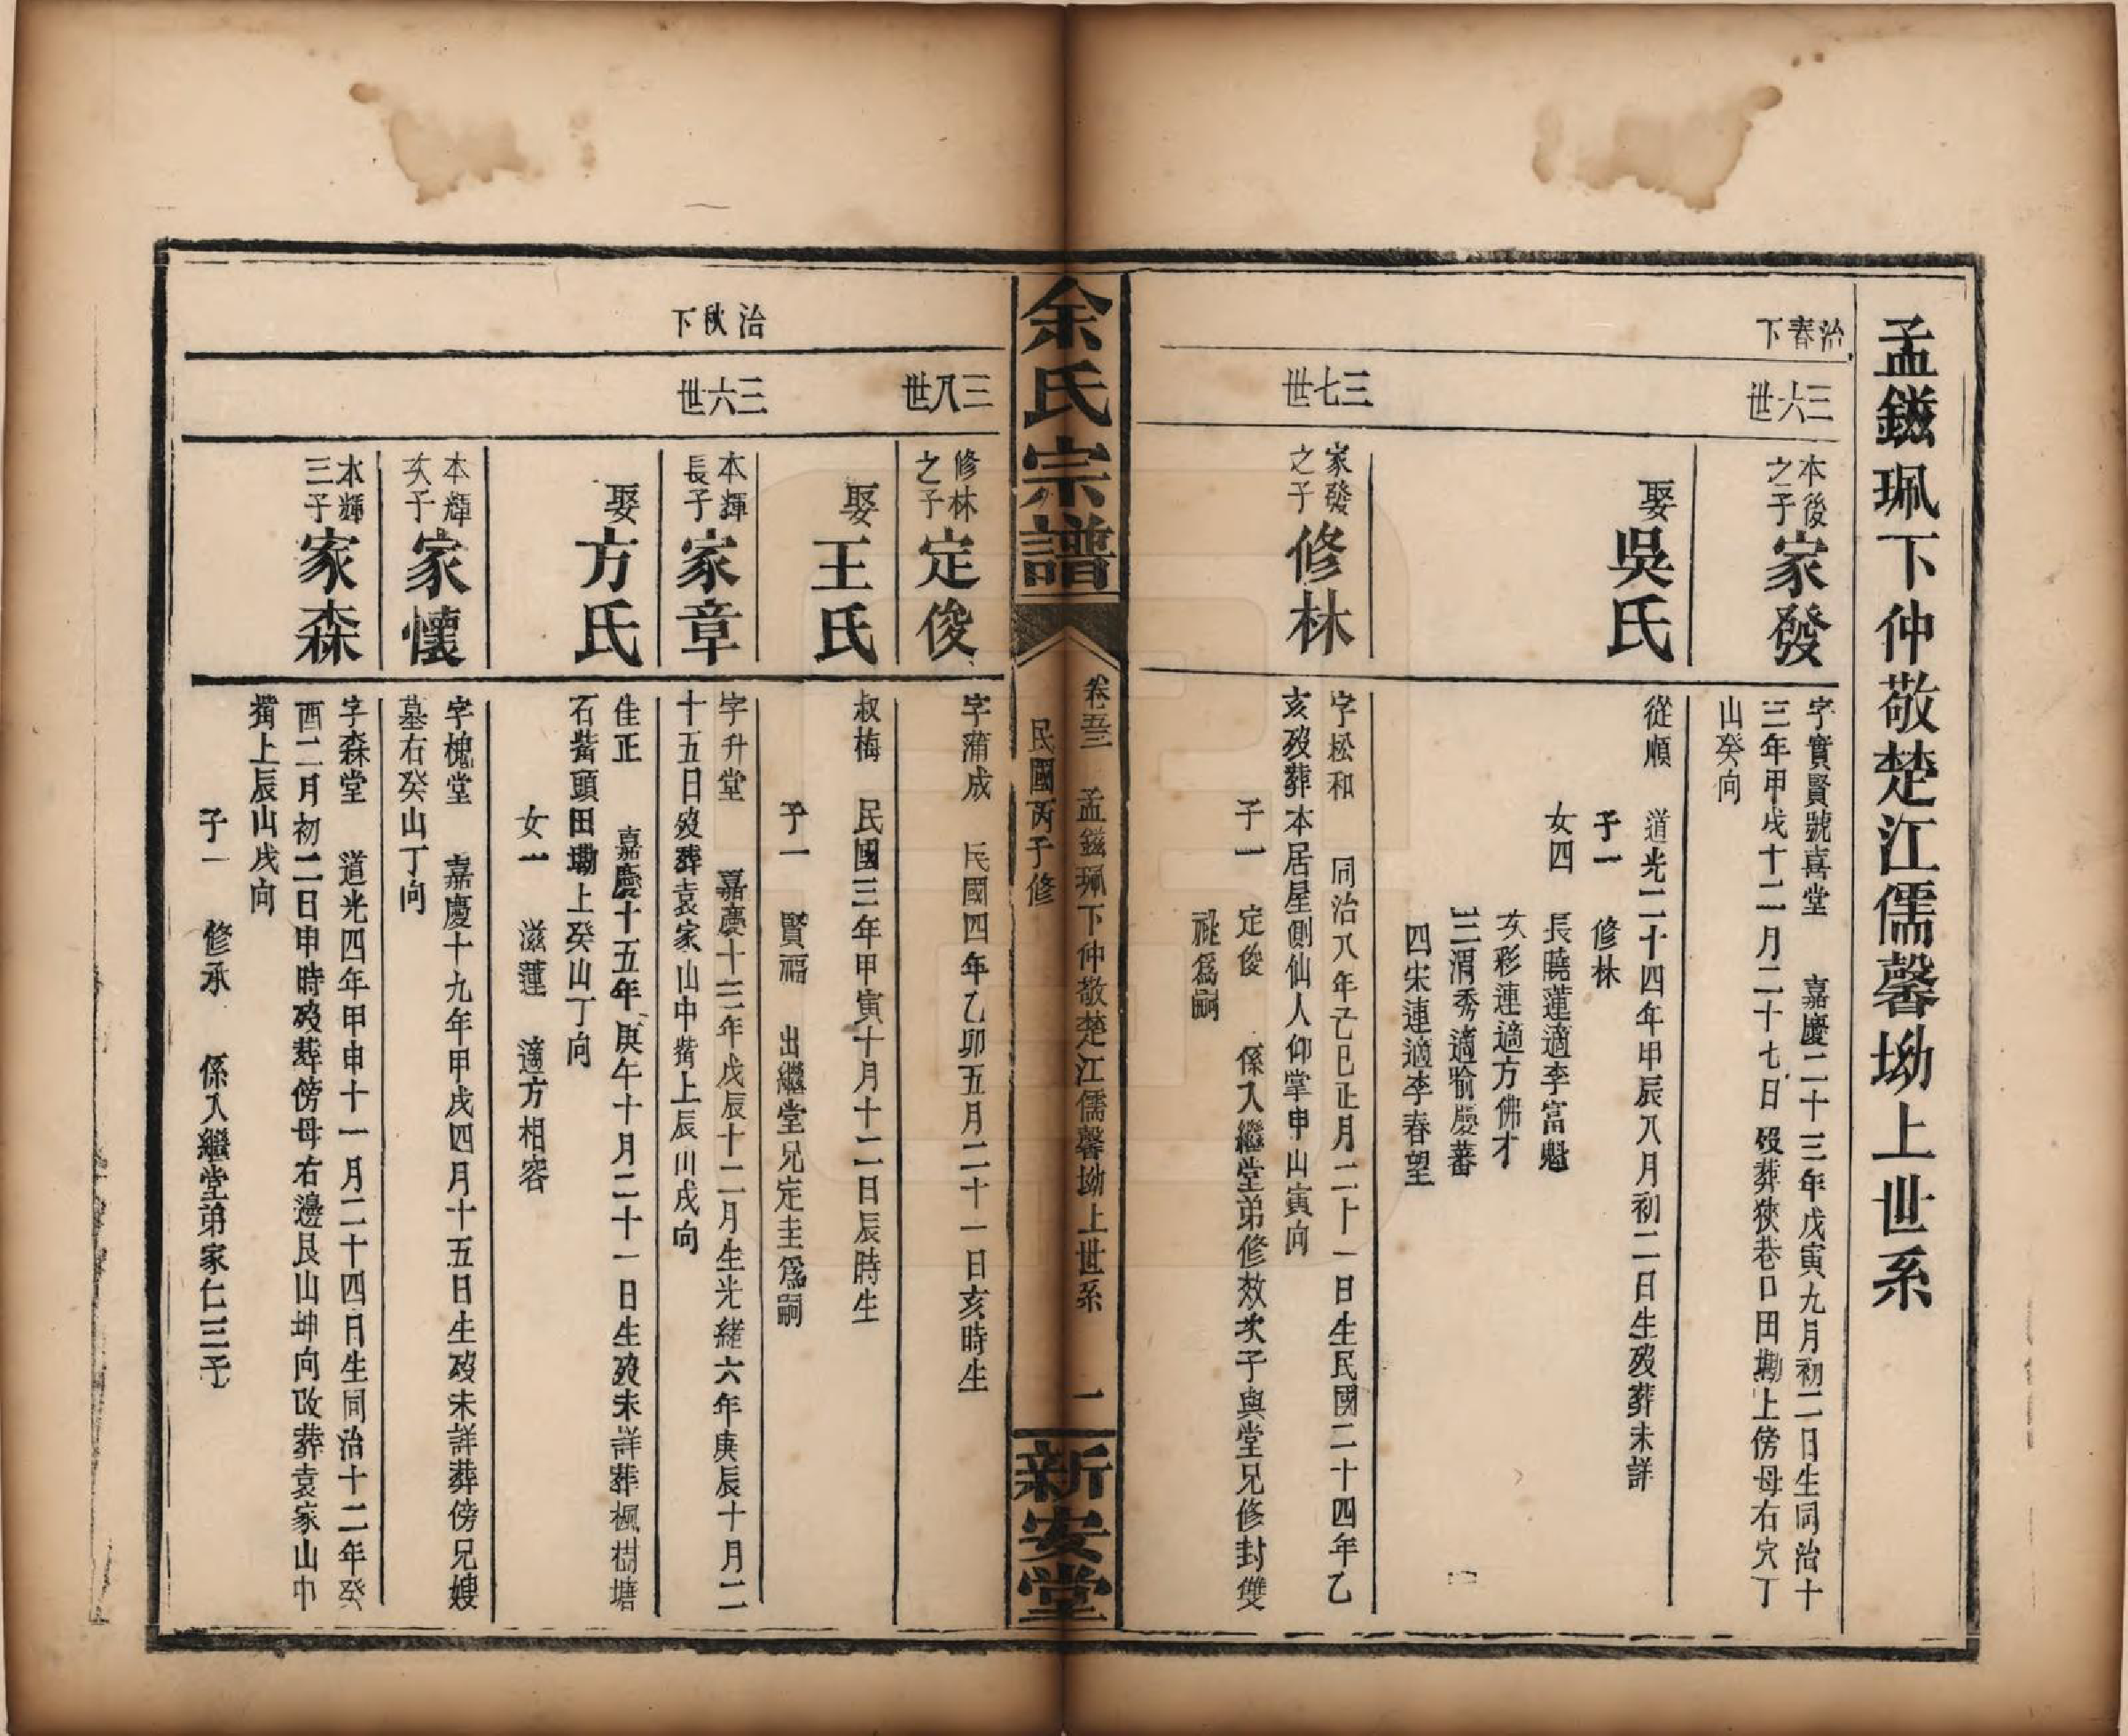 孟鎡珮下仲敬楚江儒馨坳上世系
治春下
三六世
本後之子
家發
字實賢號喜堂 嘉慶二十三年戊寅九月初二日生同治十
三年甲戌十二月二十七日歿葬狹巷口田墈上傍母右穴丁
山癸向
娶
吳氏
從順 道光二十四年甲辰八月初二日生歿葬未詳
子一 修林
女四 長曉蓮適李富魁
次彩連適方佛才
三渭秀適喻慶蕃
四宋連適李春望
三七世
家發之子
修林
字松和 同治八年己巳正月二十一日生民國二十四年乙
亥歿葬本居星側仙人仰掌申山寅向
子一 定俊 係入繼堂弟修效次子與堂兄修封雙
祧爲嗣
余氏宗譜
卷五三 孟鎡珮下仲敬楚江儒馨坳上世系 一
民國丙子修
新安堂
三八世
修林之子
定俊
字蒲成 民國四年乙卯五月二十一日亥時生
娶
王氏
叔梅 民國三年甲寅十月十二日辰時生
子一 賢福 出繼堂兄定圭爲嗣
治秋下
三六世
本輝長子
家章
字升堂 嘉慶十三年戊辰十二月生光緒六年庚辰十月二
十五日歿葬袁家山中嘴上辰山戌向
娶
方氏
佳正 嘉慶十五年庚午十月二十一日生歿未詳葬楓樹塘
石嘴頭田墈上癸山丁向
女一 滋蓮 適方相容
本輝次子
家懷
字槐堂 嘉慶十九年甲戌四月十五日生歿未詳葬傍兄嫂
墓右癸山丁向
本輝三子
家森
字森堂 道光四年甲申十一月二十四日生同治十二年癸
酉二月初二日申時歿葬傍母右邊艮山坤向改葬袁家山中
嘴上辰山戌向
子一 修承 係入繼堂弟家仁三子